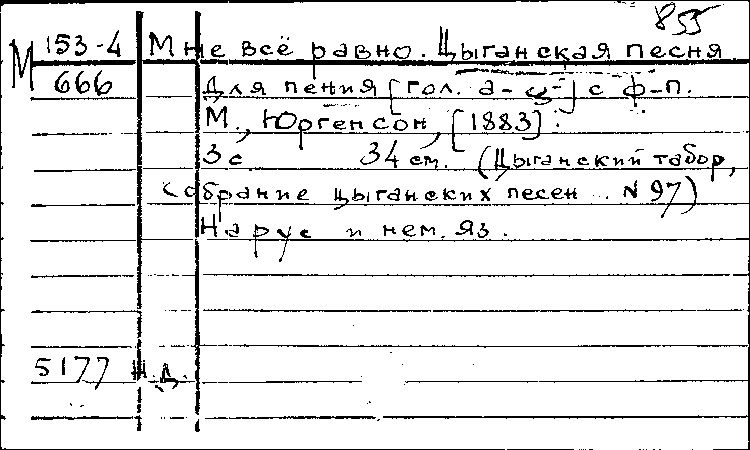 855
М 153-4 Мне всё равно. Цыганская песня
666 Для пения [гол. a- ] с ф-п.
М., Юргенсон, [1883].
3 с 34 см. (Цыганский табор,
Собрание цыганских песен .. N 97)
На рус и нем. яз.
5177 н.д.